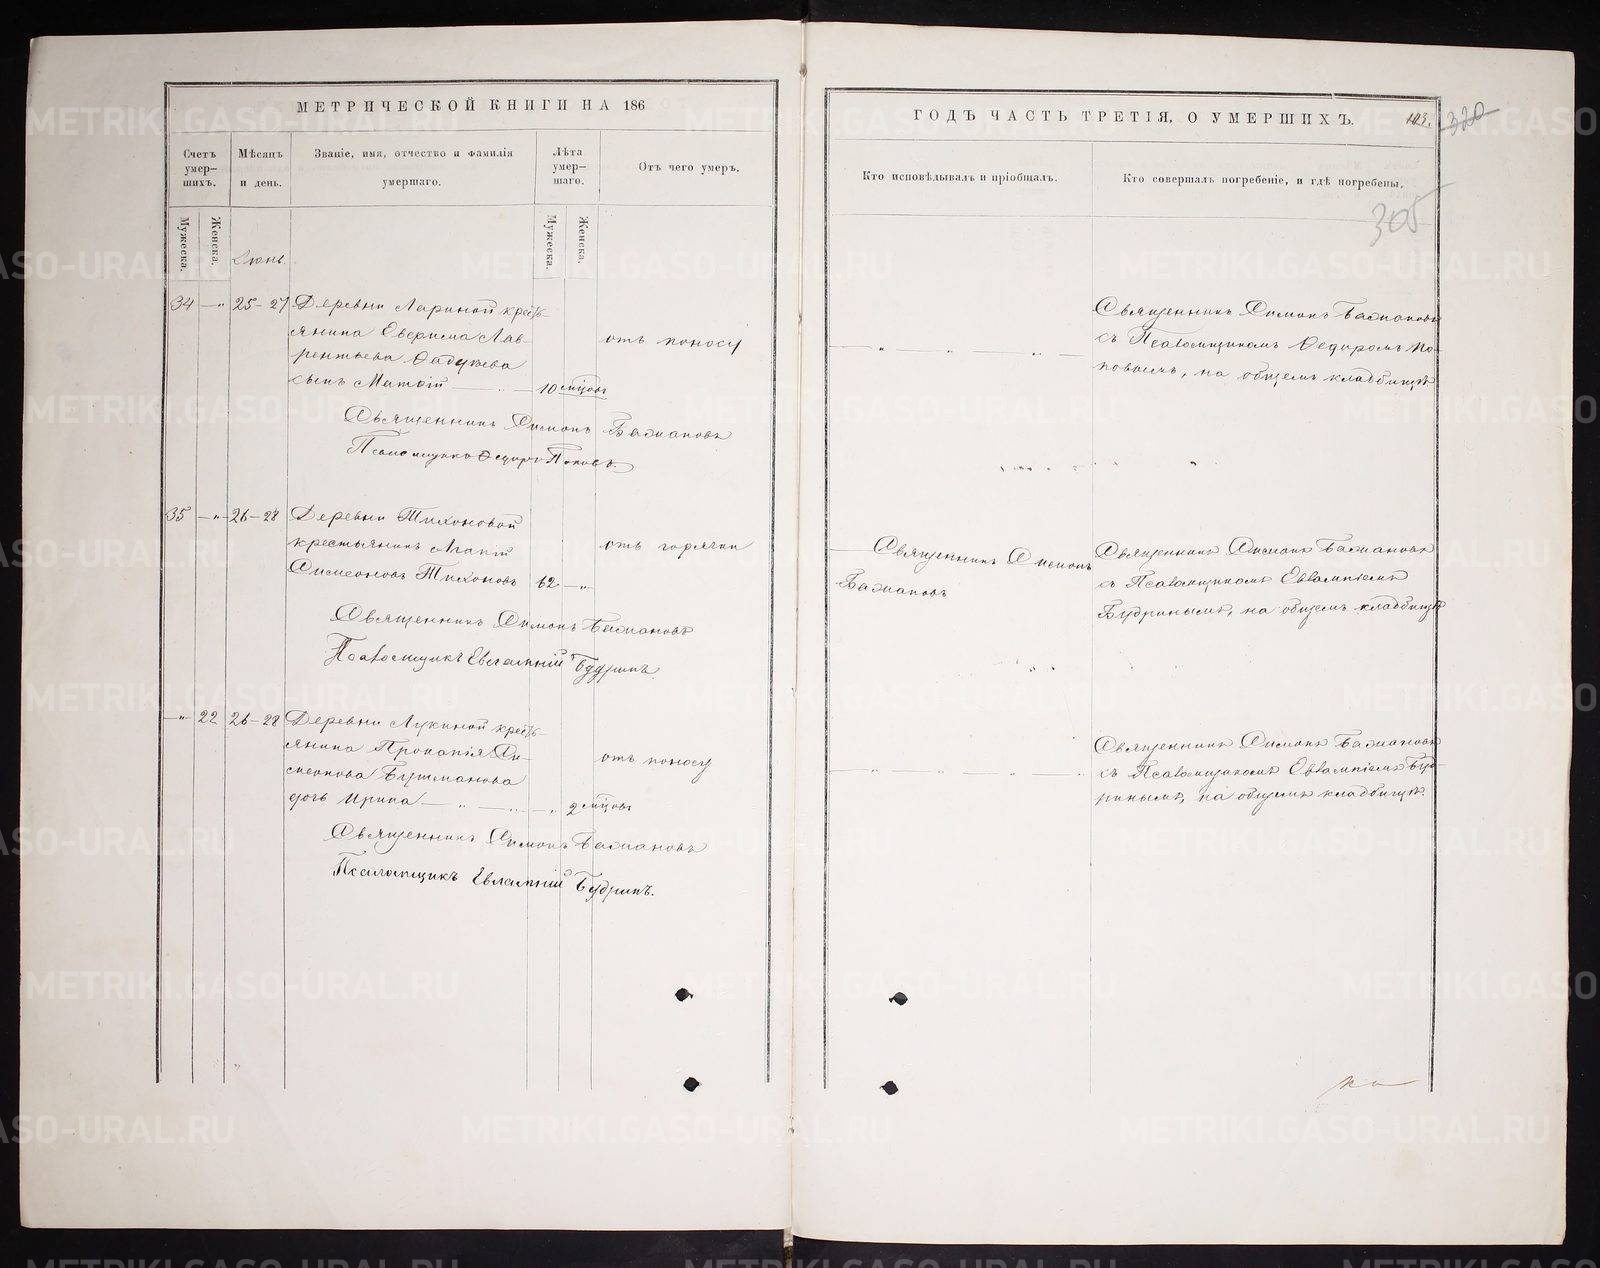 МЕТРИЧЕСКОЙ КНИГИ НА 186
Счетъ умер-шихъ.
Мѣсяцъ и день.
Званіе, имя, отчество и фамилія умершаго.
Лѣта умер-шаго.
Отъ чего умеръ.
Мужеска.
Женска.
Мужеска.
Женска.
Іюнь.
34 — " 25-27 Деревни Лариной кресть-
янина Лав-
рентьева отъ поносу
сынъ — 10 мѣсяцъ
Священникъ Симонъ Бажановъ
Псаломщикъ Федоръ Поповъ.
35 — " — 26-28 Деревни Тихоновой
крестьянинъ Агапій отъ горячки
Симеоновъ Тихоновъ 62 — "
Священникъ Симонъ Бажановъ
Псаломщикъ Евлампій Будринъ.
— " 22 26-28 Деревни Лукиной кресть-
янина Прокопія Си-
меонова Бушманова отъ поносу
дочь Ирина — " — " — " 2 мѣсяцъ
Священникъ Симонъ Бажановъ
Псаломщикъ Евлампій Будринъ.
ГОДЪ ЧАСТЬ ТРЕТІЯ, О УМЕРШИХЪ.
103.
320
305
Кто исповѣдывалъ и пріобщалъ.
Кто совершалъ погребеніе, и гдѣ погребены.
Священникъ Симонъ Бажановъ
съ Псаломщикомъ Федоромъ По-
повымъ, на общемъ кладбищѣ
Священникъ Симонъ
Бажановъ
Священникъ Симонъ Бажановъ
съ Псаломщикомъ Евлампіемъ
Будринымъ, на общемъ кладбищѣ
Священникъ Симонъ Бажановъ
съ Псаломщикомъ Евлампіемъ Буд-
ринымъ, на общемъ кладбищѣ.
METRIKI.GASO-URAL.RU